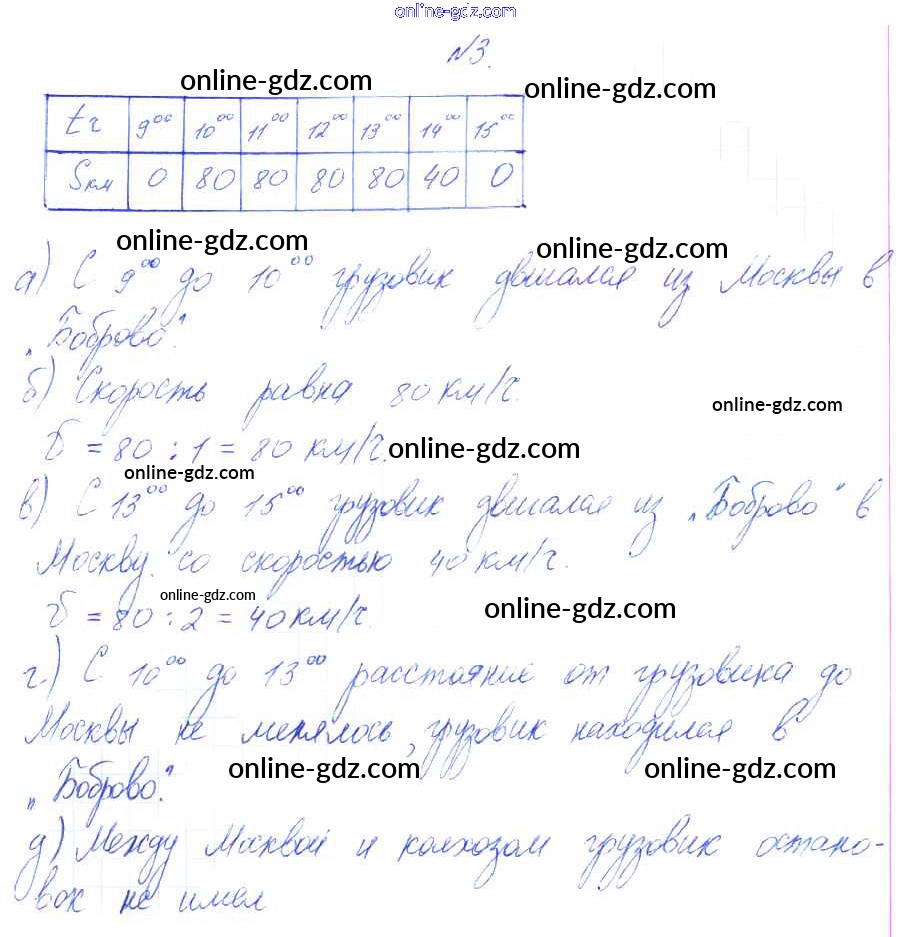 online-gdz.com
№3.
online-gdz.com online-gdz.com
t г 9⁰⁰ 10⁰⁰ 11⁰⁰ 12⁰⁰ 13⁰⁰ 14⁰⁰ 15⁰⁰
S км 0 80 80 80 80 40 0
online-gdz.com online-gdz.com
а) С 9⁰⁰ до 10⁰⁰ грузовик двигался из Москвы в
„Боброво".
б) Скорость равна 80 км/ч.
online-gdz.com
υ = 80 : 1 = 80 км/ч. online-gdz.com
online-gdz.com
в) С 13⁰⁰ до 15⁰⁰ грузовик двигался из „Боброво" в
Москву со скоростью 40 км/ч.
online-gdz.com
υ = 80 : 2 = 40 км/ч. online-gdz.com
г) С 10⁰⁰ до 13⁰⁰ расстояние от грузовика до
Москвы не менялось, грузовик находился в
„Боброво". online-gdz.com online-gdz.com
д) Между Москвой и колхозом грузовик остано-
вок не имел